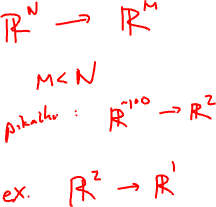 ℝᴺ → ℝᴹ
M < N
pikachu : ℝ^~100 → ℝ²
ex. ℝ² → ℝ¹